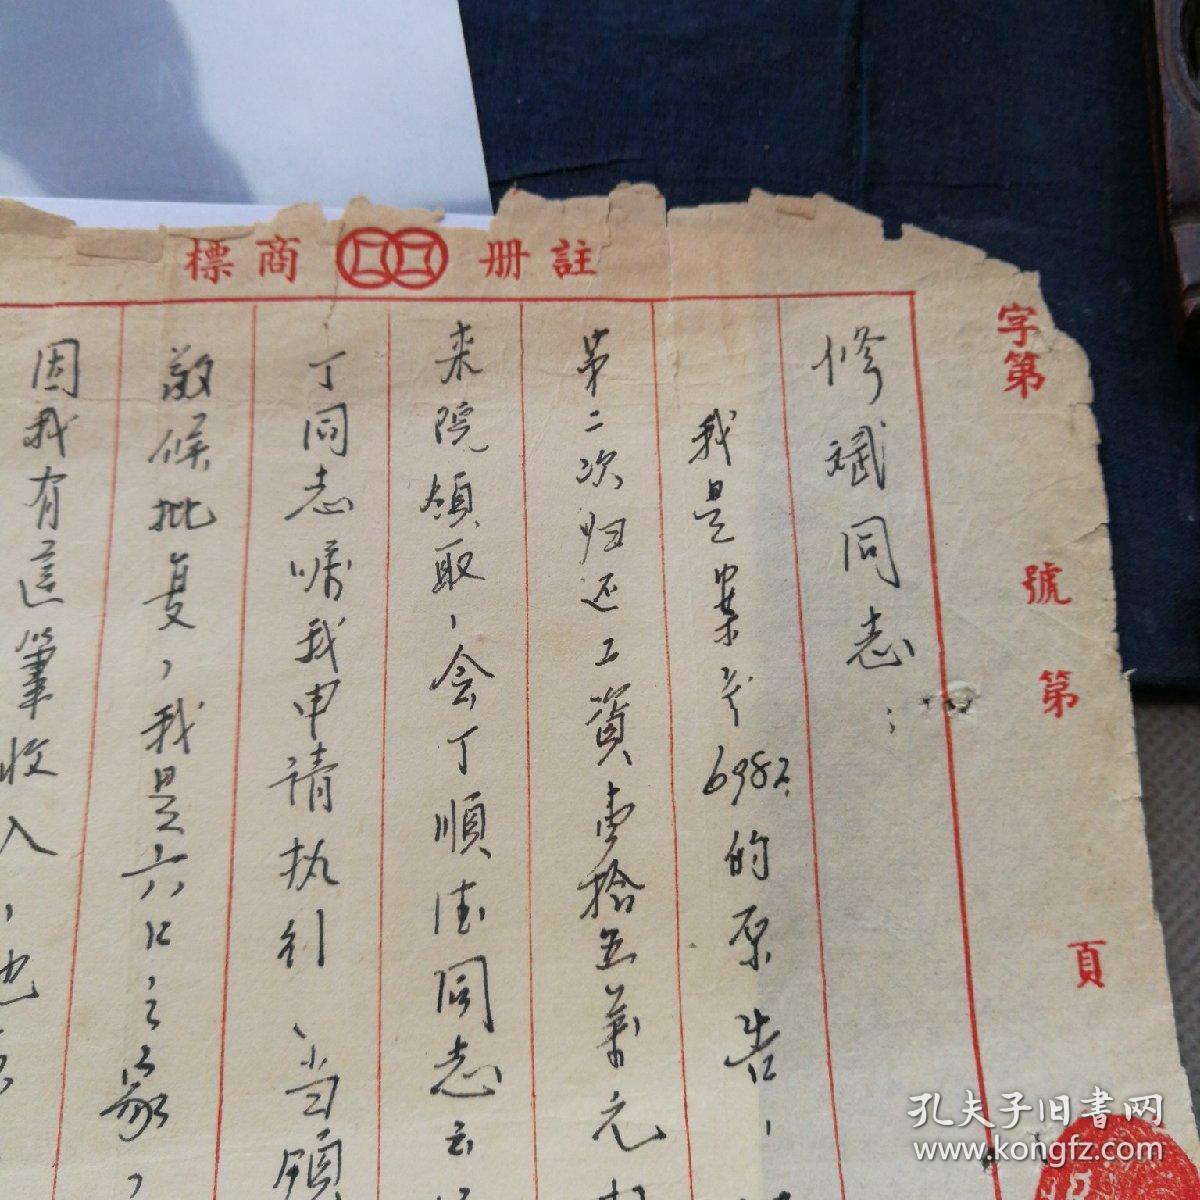 標商 册註
字第 號 第 頁
修斌同志：
我是案号6982的原告，
第二次归还工资壹拾五萬元
来院領取，会丁順德同志云
丁同志嘱我申请执行、当領
敬候批复，我是六口之家，
因我有這筆收入，也
孔夫子旧书网
www.kongfz.com